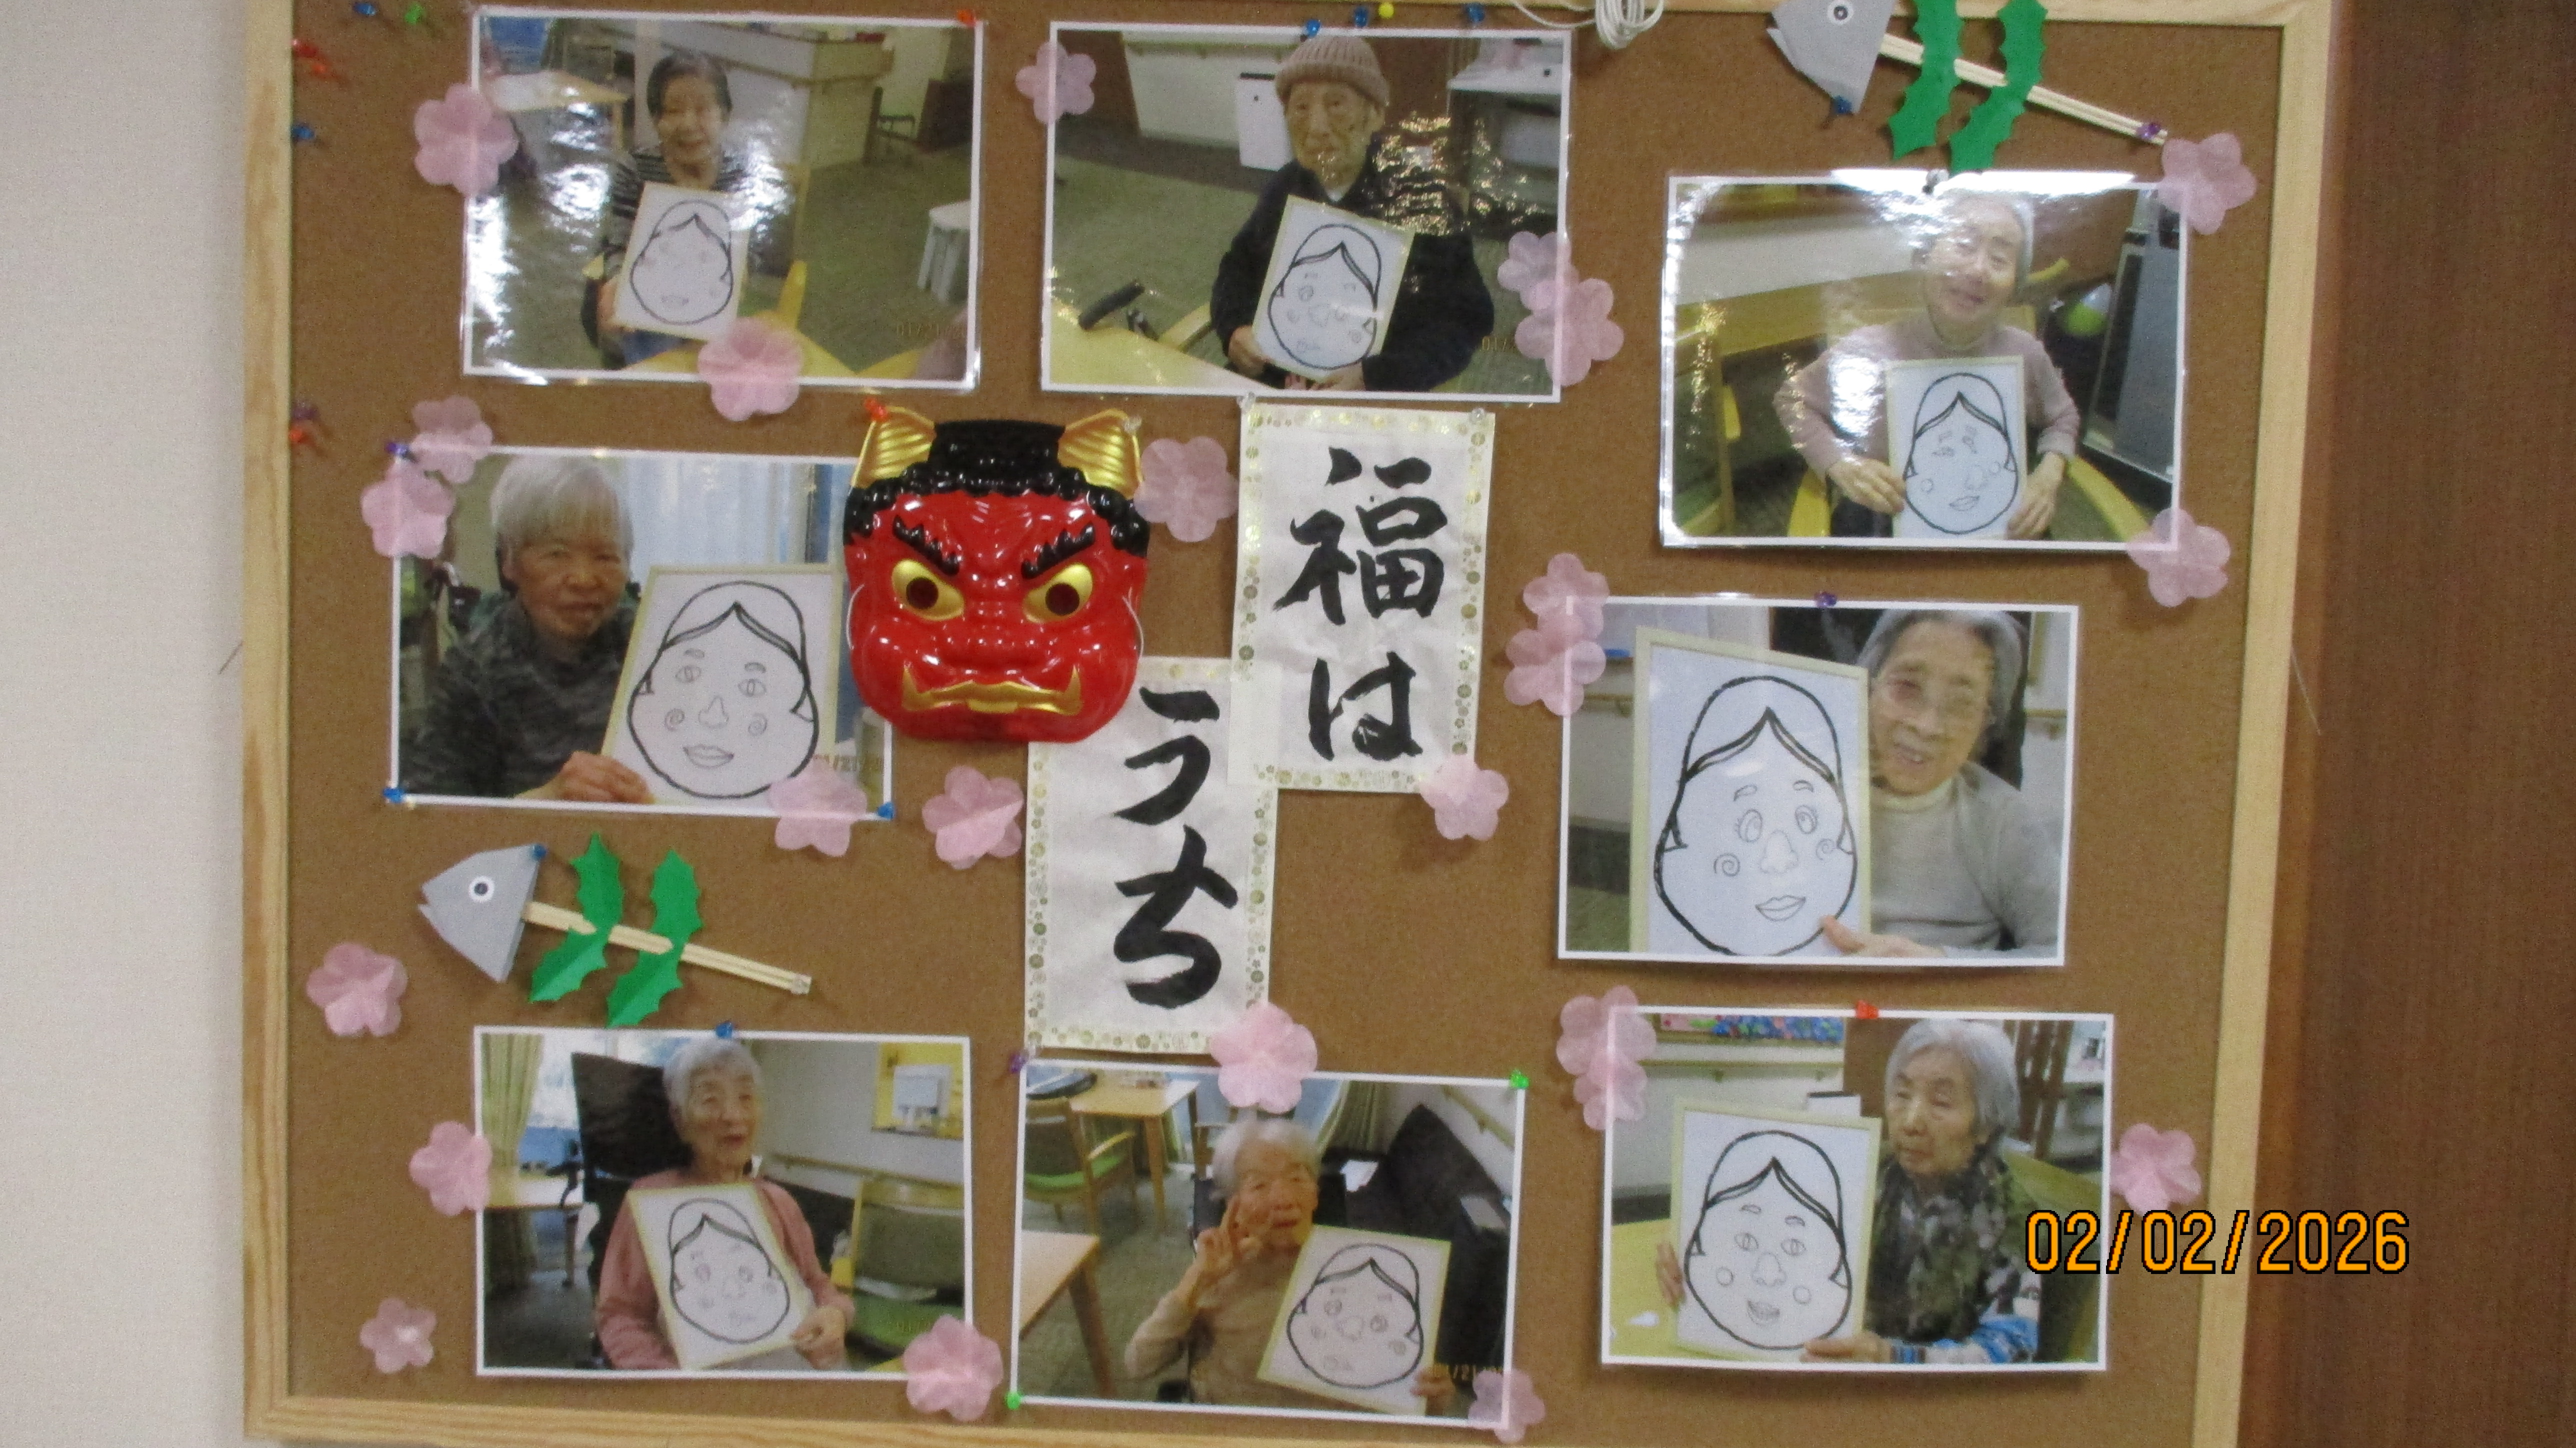 福は
うち
02/02/2026